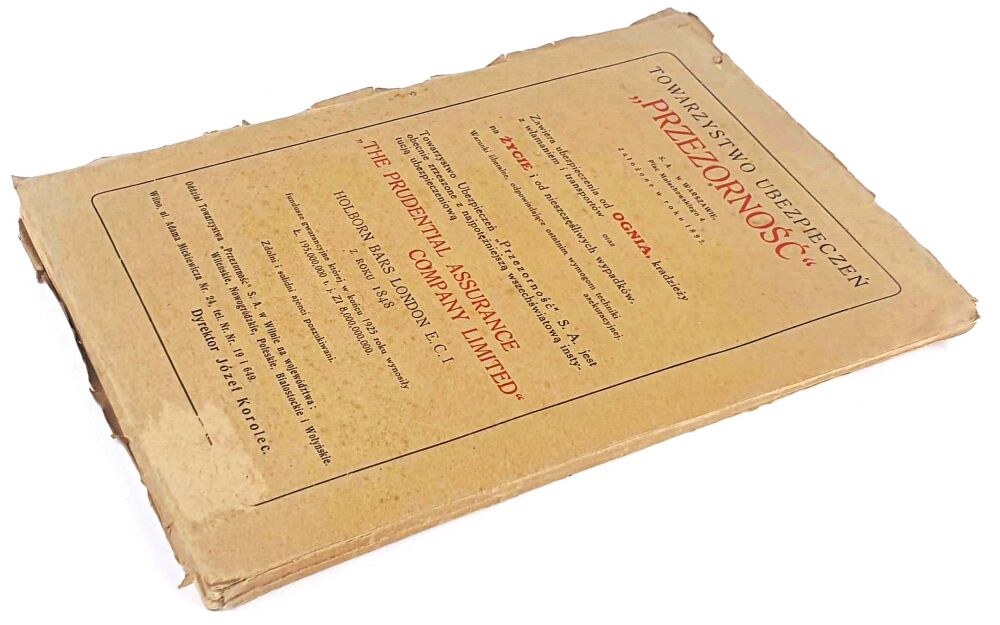 TOWARZYSTWO UBEZPIECZEŃ
„PRZEZORNOŚĆ“
S. A. w WARSZAWIE,
Plac Małachowskiego 4.
Założone w roku 1892.
Zawiera ubezpieczenia od OGNIA, kradzieży
z włamaniem i transportów oraz
na ŻYCIE i od nieszczęśliwych wypadków.
Warunki liberalne, odpowiadające ostatnim wymogom techniki
asekuracyjnej.
Towarzystwo Ubezpieczeń „Przezorność“ S. A. jest
obecnie zrzeszone z najpotężniejszą wszechświatową insty-
tucją ubezpieczeniową
„THE PRUDENTIAL ASSURANCE
COMPANY LIMITED“
HOLBORN BARS LONDON E. C. I
Z ROKU 1848
fundusze gwarancyjne której w końcu 1925 roku wynosiły
Ł. 195,000,000 t. j. Zł 8,000,000,000.
Zdolni i solidni ajenci poszukiwani.
Oddział Towarzystwa „Przezorność“ S. A. w Wilnie na województwa:
Wileńskie, Nowogródzkie, Poleskie, Białostockie i Wołyńskie.
Wilno, ul. Adama Mickiewicza Nr. 24, tel. Nr. Nr. 19 i 649.
Dyrektor Józef Korolec.